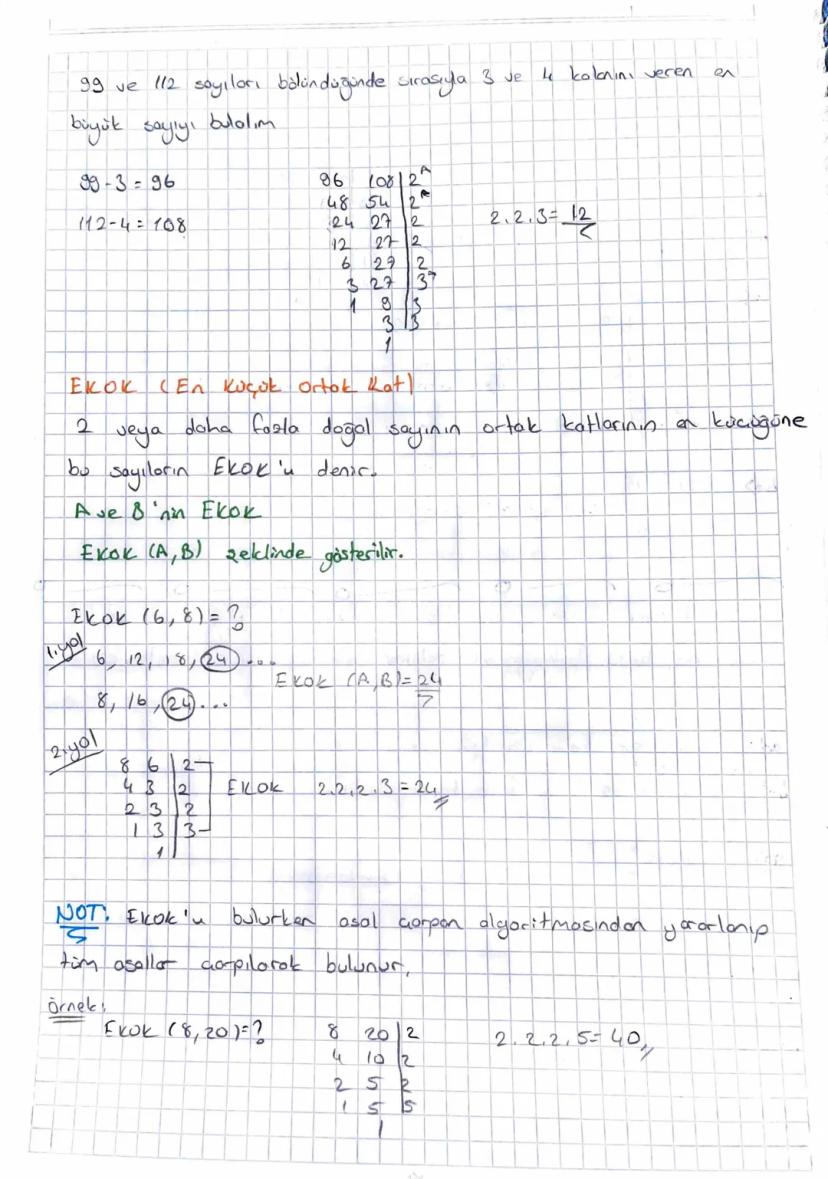 99 ve 112 sayıları bölündüğünde sırasıyla 3 ve 4 kalanını veren en
büyük sayıyı bulalım
99-3=96
112-4=108
96 108 2
48 54 2
24 27 2
12 27 2
6 27 2
3 27 3
1 9 3
3 3
1
2.2.3=12
EKOK (En Küçük Ortak Kat)
2 veya daha fazla doğal sayının ortak katlarının en küçüğüne
bu sayıların EKOK'u denir.
A ve B'nin EKOK
EKOK (A,B) şeklinde gösterilir.
EKOK (6,8)=?
1.yol
6, 12, 18, 24...
8, 16, 24...
EKOK (A,B)=24
2.yol
8 6 2
4 3 2
2 3 2
1 3 3
1
EKOK 2.2.2.3=24
NOT: EKOK'u bulurken asal çarpan algoritmasından yararlanıp
tüm asallar çarpılarak bulunur.
örnek:
EKOK (8,20)=?
8 20 2
4 10 2
2 5 2
1 5 5
1
2.2.2.5=40